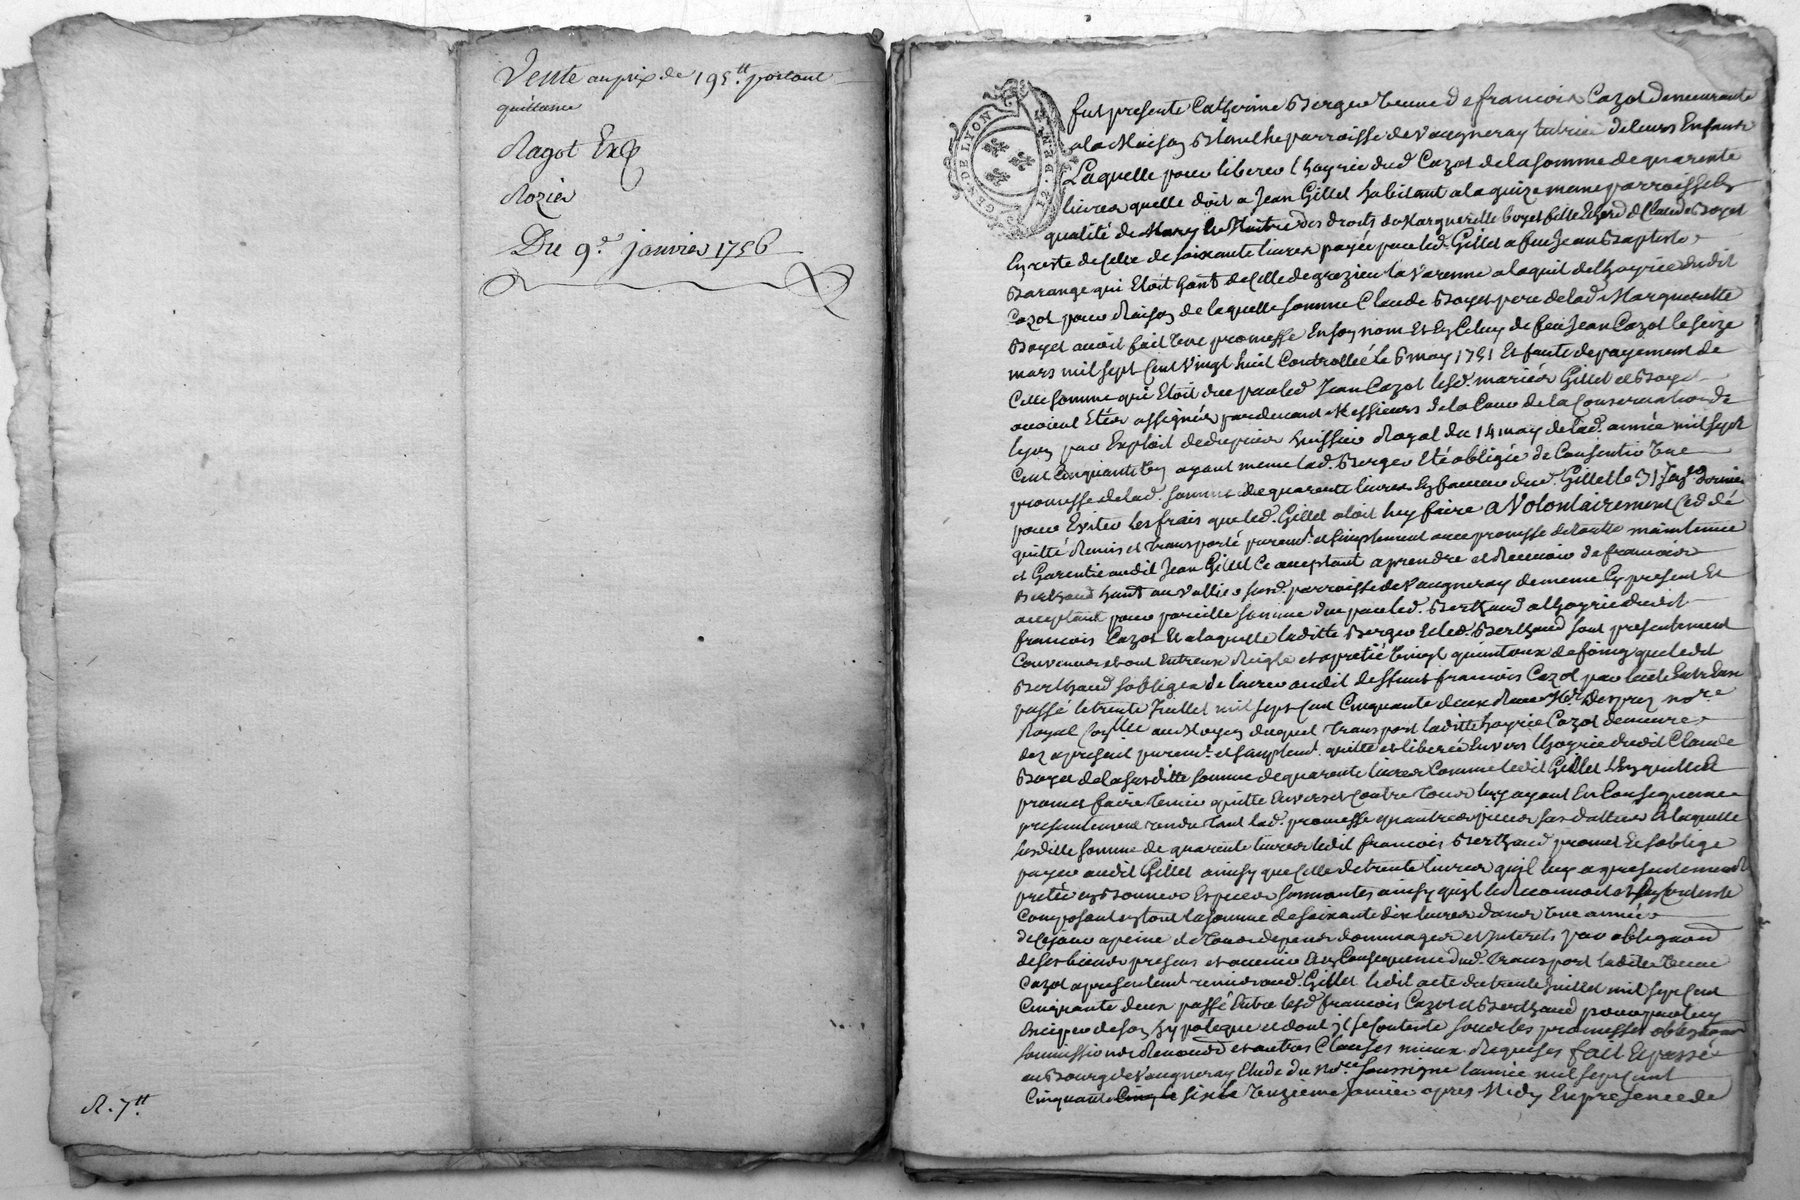 Vente au prix de 195.tt portant
quittance
Ragot Exp
Rozier
Du 9.e janvier 1756
R. 7.tt
GEN DE LYON
12. DEN. R
fut presente Catherine Berger veuve de francois Cazot demeurante
a la Maison Blanche parroisse de Vaugneray tutrice de leurs Enfants
Laquelle pour liberer l hoyrie dud Cazot de la somme de quarente
livres quelle doit a Jean Gillet habitant a la quize meme parroisse En
qualité de Mary Et Maitre des droits de Marguerite boyet fille Et herd de Claude Boyet
En reste de Celle de soixante livres payée par led. Gillet a feu Jean Baptiste
Barange qui Etoit hant de Celle de grezieu la Varenne a laquit de lhoyrie dudit
Cazot pour Raison de laquelle somme Claude Boyet pere de lad. Marguerite
Boyet avoit fait Une promesse En son nom Et En Celuy de feu Jean Cazot le seize
mars mil sept Cent vingt huit Controllée le 6 may 1751 Et faute de payement de
Cette somme qui Etoit due par led Jean Cazot lesd. mariés Gillet et Boyet
avoient Etés assignés pardevant Messieurs de la Cour de la Conservation de
lyon par Exploit de dupier huissier Royal du 14 may de lad. année mil sept
Cent Cinquante Un ayant meme lad. Berger Eté obligée de Consentir Une
promesse de lad. somme de quarente livres En faveur dud. Gillet le 31 dernier
pour Eviter les frais que led. Gillet aloit luy faire a Volontairement Ced dé
quitté Remis et transporté purem.t et simplement avec promesse de toutte maintenue
et Garentie audit Jean Gillet Ce acceptant a prendre et Recevoir de francois
Berthaud hant au Vallier susd. parroisse de Vaugneray de meme Cy present Et
acceptant pour pareille somme due par led. Berthaud a lhoyrie dudit
francois Cazot Et a laquelle laditte Berger Et led. Berthaud sont presentement
Convenus et ont Entreux Reigle et apretié Vingt quintaux de foing que ledit
Berthaud sobligea de livrer audit deffunt francois Cazot par lacte Entr Eux
passé le trente Juillet mil sept Cent Cinquante deux Recu M.e Desprez no.re
Royal au Moyen duquel transport laditte hoyrie Cazot demeure
dez a present purem.t et simplem.t quitte et liberée Envers lhoyrie dudit Claude
Boyet de la susditte somme de quarente livres Comme ledit Gillet len quitte Et
promet faire tenir quitte Envers et Contre tous luy ayant En Consequence
presentement rendu tant lad. promesse quautres pieces sus dattées Et laquelle
susditte somme de quarente livres ledit francois Berthaud promet Et soblige
payer audit Gillet ainsy que Celle de trente livres quil luy a presentement
pretée En Bonnes Especes sonnantes ainsy quil le Reconnoit et sen Contente
Composant En tout la somme de soixante dix livres dans Une année
de Ce jour a peine de tous depens dommages et Interets par obligaon
de ses biens presens et avenir Et En Consequence dud. transport laditte Veuve
Cazot a presentemt remis aud. Gillet ledit acte du trente Juillet mil sept Cent
Cinquante deux passé Entre lesd francois Cazot et Berthaud
de son hypoteque et dont il se Contente sous les promesses obligaons
soumissions Renonons et autres Clauses mieux Requises fait Et passé
au Bourg de Vaugneray Etude du no.re soussigné lannée mil sept Cent
Cinquante Cinq le six le Unzieme Janvier apres Midy En presence de